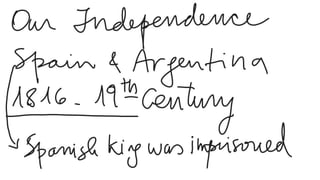 Our Independence
Spain & Argentina
1816 - 19th Century
Spanish king was imprisoned